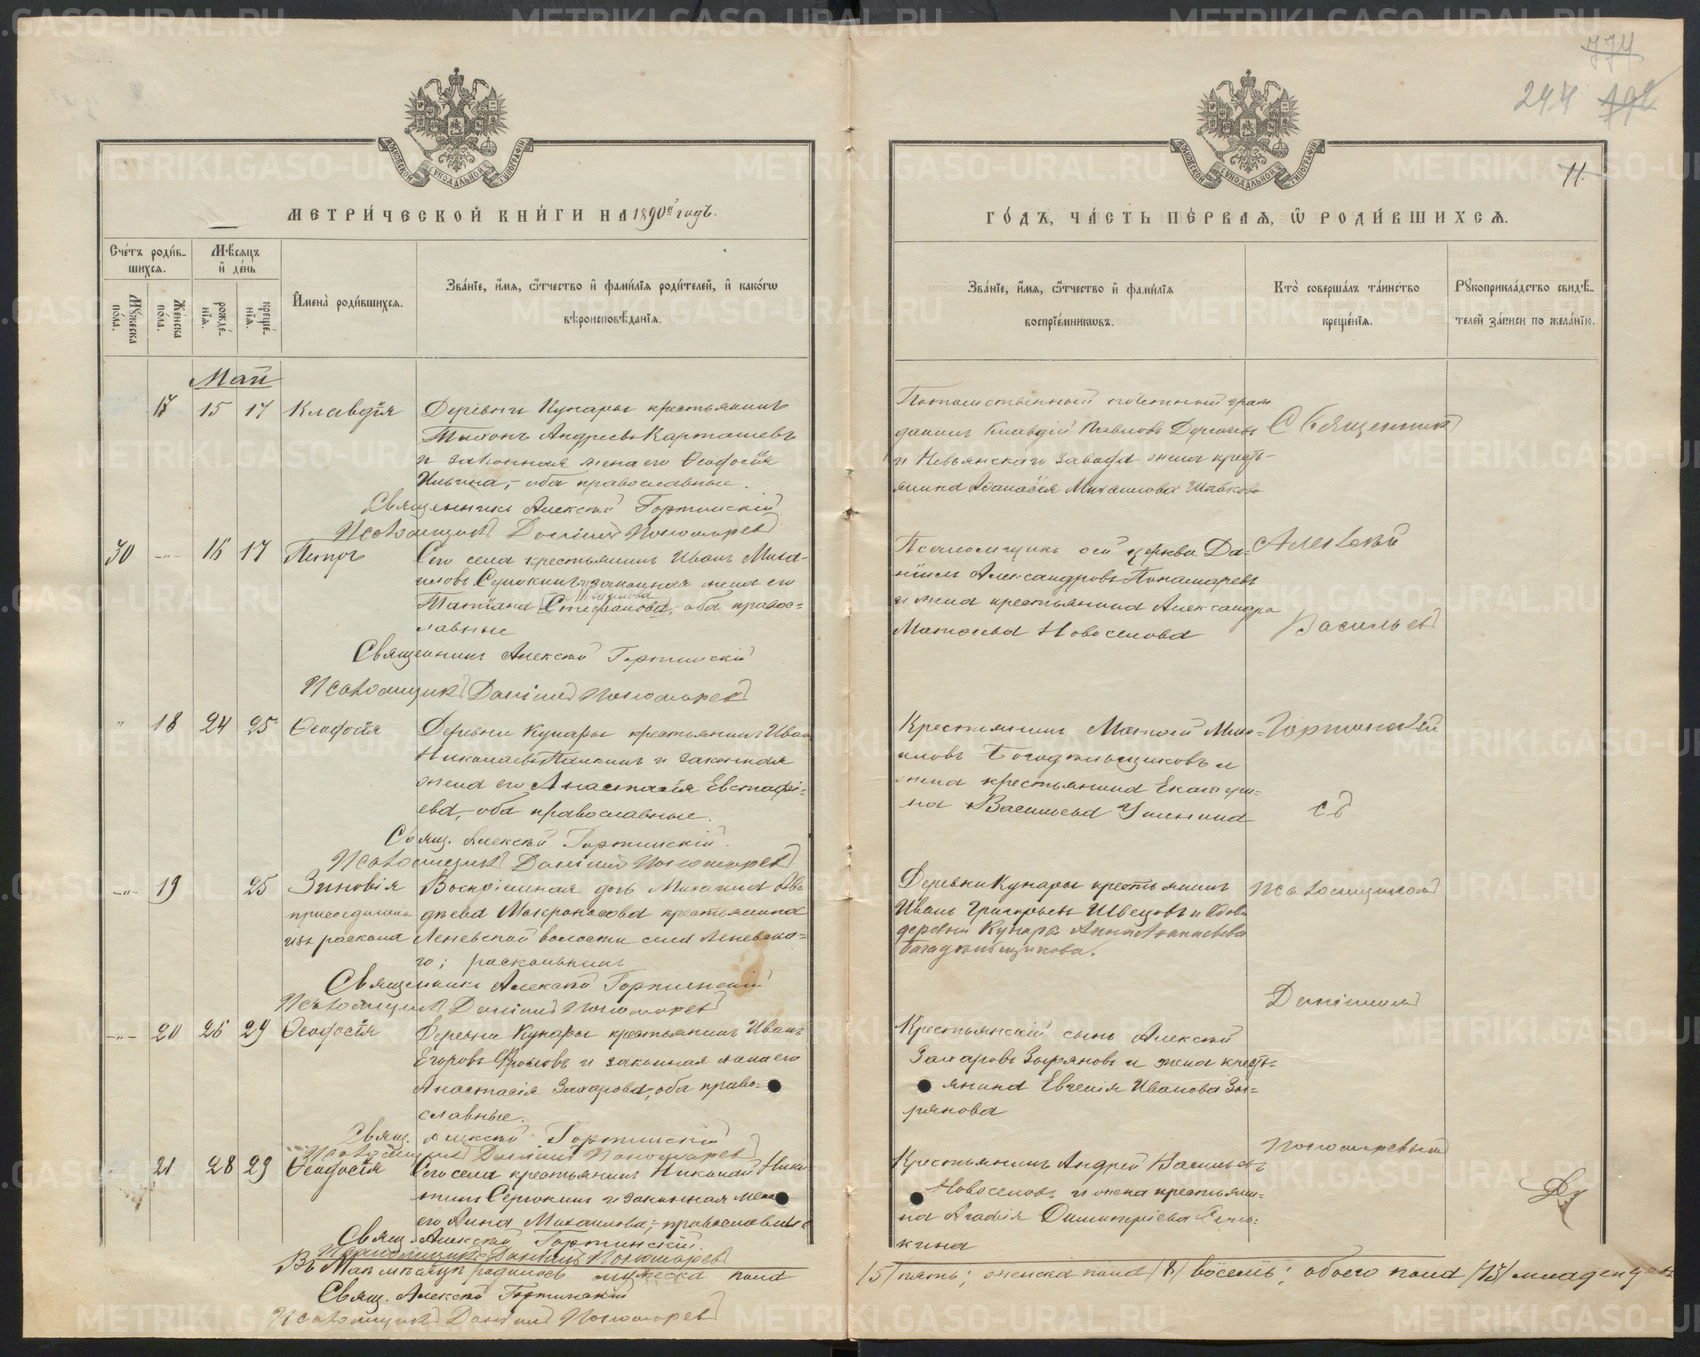 774
244
11.
МЕТРИ́ЧЕСКОЙ КНИ́ГИ НА 1890й годъ.
Сче́тъ роди́вшихся.
Мѣ́сяцъ и҆ де́нь
Мꙋ́жеска по́ла.
Же́нска по́ла.
рожде́нїѧ.
креще́нїѧ.
И҆мена̀ роди́вшихсѧ.
Зва́нїе, и҆́мѧ, ѻ҆́тчество и҆ фами́лїѧ роди́телей, и҆ како́гѡ
вѣроисповѣ́данїѧ.
Май
17 15 17 Клавдія
Деревни Кунары крестьянинъ
Тихонъ Андреевъ Карташевъ
и законная жена его Ѳеодосія
Ильина, оба православные.
Священникъ Алексѣй Гортинскій
Псаломщикъ Даніилъ Пономаревъ
30 -"- 16 17 Петръ
Сего села крестьянинъ Иванъ Миха-
иловъ Серюкинъ и законная жена его
Татіана Стефанова, оба правос-
лавные
Священникъ Алексѣй Гортинскій
Псаломщикъ Даніилъ Пономаревъ
" 18 24 25 Ѳеодосія
Деревни Кунары крестьянинъ Иванъ
Николаевъ и законная
жена его Анастасія Евстафі-
ева, оба православные.
Свящ. Алексѣй Гортинскій.
Псаломщикъ Даніилъ Пономаревъ
-"- 19 25 Зиновія
присоединена
изъ раскола
дочь Михаила
крестьянина
волости села
го; раскольникъ
Священникъ Алексѣй Гортинскій
Псаломщикъ Даніилъ Пономаревъ
-"- 20 26 29 Ѳеодосія
Деревни Кунары крестьянинъ Иванъ
Егоровъ Фроловъ и законная жена его
Анастасія Захарова, оба право-
славные.
Свящ. Алексѣй Гортинскій
Псаломщикъ Даніилъ Пономаревъ
21 28 29 Ѳеодосія
Сего села крестьянинъ Николай Ники-
тинъ Серюкинъ и законная жена
его Анна Михаилова, православные
Свящ. Алексѣй Гортинскій.
Псаломщикъ Даніилъ Пономаревъ
Въ Маѣ мѣсяцѣ родилось мужеска пола
Свящ. Алексѣй Гортинскій
Псаломщикъ Даніилъ Пономаревъ
ГО́ДЪ, ЧА́СТЬ ПЕ́РВАѦ, Ѡ҆ РОДИ́ВШИХСѦ.
Зва́нїе, и҆́мѧ, ѻ҆́тчество и҆ фами́лїѧ
воспрїе́мникѡвъ.
Кто̀ соверша́лъ та́инство
креще́нїѧ.
Рꙋкоприкла́дство свидѣ́-
телей за́писи по жела́нїю.
Потомственный почетный граж-
данинъ Клавдій Павловъ
и Невьянскаго завода жена кресть-
янина Аѳанасія Михаилова
Священникъ
Псаломщикъ сей церкви Да-
ніилъ Александровъ Пономаревъ
и жена крестьянина Александра
Матѳеева Новоселова
Алексѣй
Васильевъ
Крестьянинъ Матѳей Миха-
иловъ Богадѣльщиковъ и
жена крестьянина Екатери-
на Васильева
Гортинскій
съ
Деревни Кунары крестьянинъ
Иванъ Григорьевъ Швецовъ и вдова
деревни Кунары Анна
Богадѣльщикова.
Псаломщикомъ
Даніиломъ
Крестьянскій сынъ Алексѣй
Захаровъ Зыряновъ и жена кресть-
янина Евгенія Иванова Зы-
рянова
Пономаревымъ
Крестьянинъ Андрей Васильевъ
Новоселовъ и жена крестьяни-
на Агафія Димитріева
кина
/5/ пять; женска пола /8/ восемь; обоего пола /13/ младенцевъ
METRIKI.GASO-URAL.RU